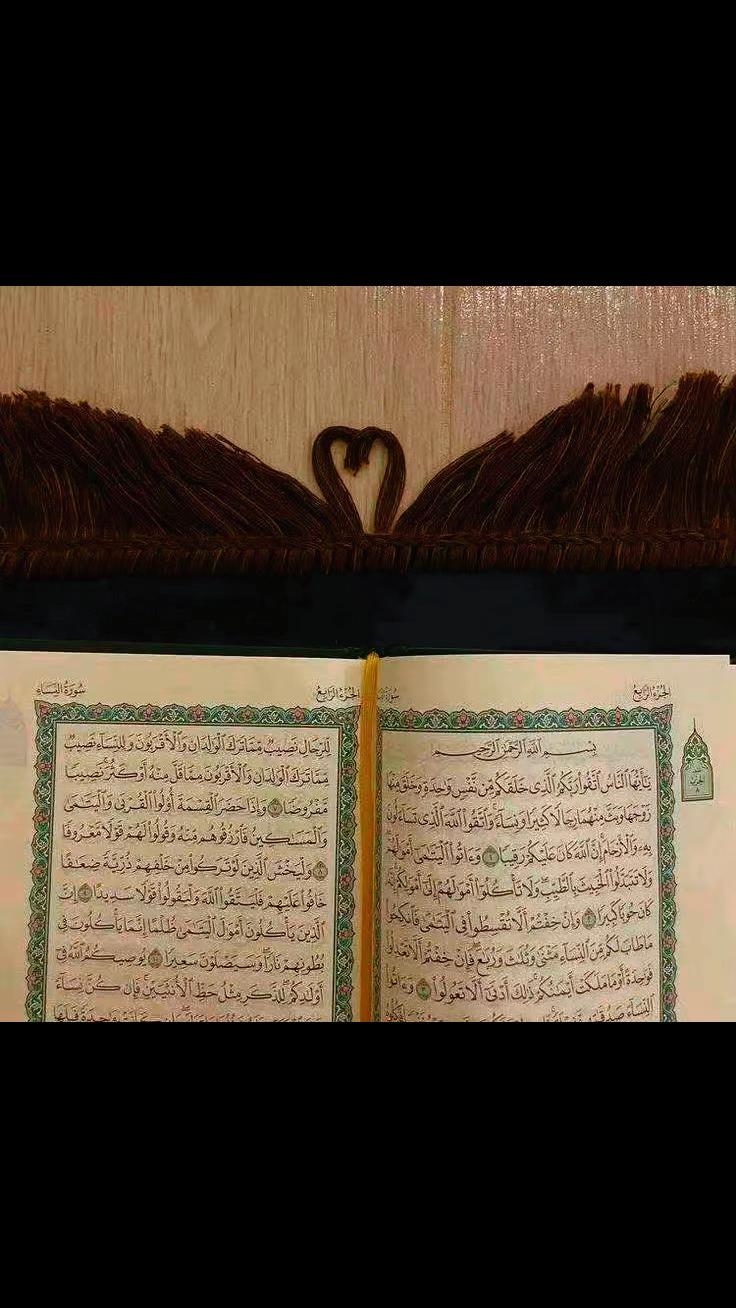 الجزء الرابع
سورة
بِسْمِ اللَّهِ الرَّحْمَٰنِ الرَّحِيمِ
يَٰٓأَيُّهَا ٱلنَّاسُ ٱتَّقُوا۟ رَبَّكُمُ ٱلَّذِى خَلَقَكُم مِّن نَّفْسٍ وَٰحِدَةٍ وَخَلَقَ مِنْهَا
زَوْجَهَا وَبَثَّ مِنْهُمَا رِجَالًا كَثِيرًا وَنِسَآءً وَٱتَّقُوا۟ ٱللَّهَ ٱلَّذِى تَسَآءَلُونَ
بِهِۦ وَٱلْأَرْحَامَ إِنَّ ٱللَّهَ كَانَ عَلَيْكُمْ رَقِيبًا ١ وَءَاتُوا۟ ٱلْيَتَٰمَىٰٓ أَمْوَٰلَهُمْ
وَلَا تَتَبَدَّلُوا۟ ٱلْخَبِيثَ بِٱلطَّيِّبِ وَلَا تَأْكُلُوٓا۟ أَمْوَٰلَهُمْ إِلَىٰٓ أَمْوَٰلِكُمْ إِنَّهُۥ
كَانَ حُوبًا كَبِيرًا ٢ وَإِنْ خِفْتُمْ أَلَّا تُقْسِطُوا۟ فِى ٱلْيَتَٰمَىٰ فَٱنكِحُوا۟
مَا طَابَ لَكُم مِّنَ ٱلنِّسَآءِ مَثْنَىٰ وَثُلَٰثَ وَرُبَٰعَ فَإِنْ خِفْتُمْ أَلَّا تَعْدِلُوا۟
فَوَٰحِدَةً أَوْ مَا مَلَكَتْ أَيْمَٰنُكُمْ ذَٰلِكَ أَدْنَىٰٓ أَلَّا تَعُولُوا۟ ٣ وَءَاتُوا۟
ٱلنِّسَآءَ
الجزء الرابع
سورة النساء
لِّلرِّجَالِ نَصِيبٌ مِّمَّا تَرَكَ ٱلْوَٰلِدَانِ وَٱلْأَقْرَبُونَ وَلِلنِّسَآءِ نَصِيبٌ
مِّمَّا تَرَكَ ٱلْوَٰلِدَانِ وَٱلْأَقْرَبُونَ مِمَّا قَلَّ مِنْهُ أَوْ كَثُرَ نَصِيبًا
مَّفْرُوضًا ٧ وَإِذَا حَضَرَ ٱلْقِسْمَةَ أُو۟لُوا۟ ٱلْقُرْبَىٰ وَٱلْيَتَٰمَىٰ
وَٱلْمَسَٰكِينُ فَٱرْزُقُوهُم مِّنْهُ وَقُولُوا۟ لَهُمْ قَوْلًا مَّعْرُوفًا
٨ وَلْيَخْشَ ٱلَّذِينَ لَوْ تَرَكُوا۟ مِنْ خَلْفِهِمْ ذُرِّيَّةً ضِعَٰفًا
خَافُوا۟ عَلَيْهِمْ فَلْيَتَّقُوا۟ ٱللَّهَ وَلْيَقُولُوا۟ قَوْلًا سَدِيدًا ٩ إِنَّ
ٱلَّذِينَ يَأْكُلُونَ أَمْوَٰلَ ٱلْيَتَٰمَىٰ ظُلْمًا إِنَّمَا يَأْكُلُونَ فِى
بُطُونِهِمْ نَارًا وَسَيَصْلَوْنَ سَعِيرًا ١٠ يُوصِيكُمُ ٱللَّهُ فِىٓ
أَوْلَٰدِكُمْ لِلذَّكَرِ مِثْلُ حَظِّ ٱلْأُنثَيَيْنِ فَإِن كُنَّ نِسَآءً